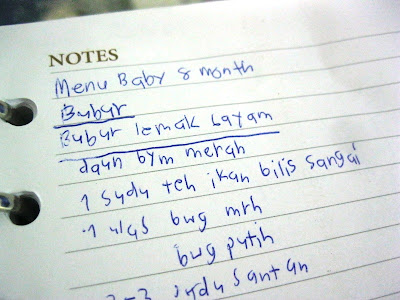 NOTES
Menu Baby 8 month
Bubur
Bubur lemak bayam
daun bym merah
1 sudu teh ikan bilis sangai
1 ulas bwg mrh
bwg putih
2-3 sudu santan